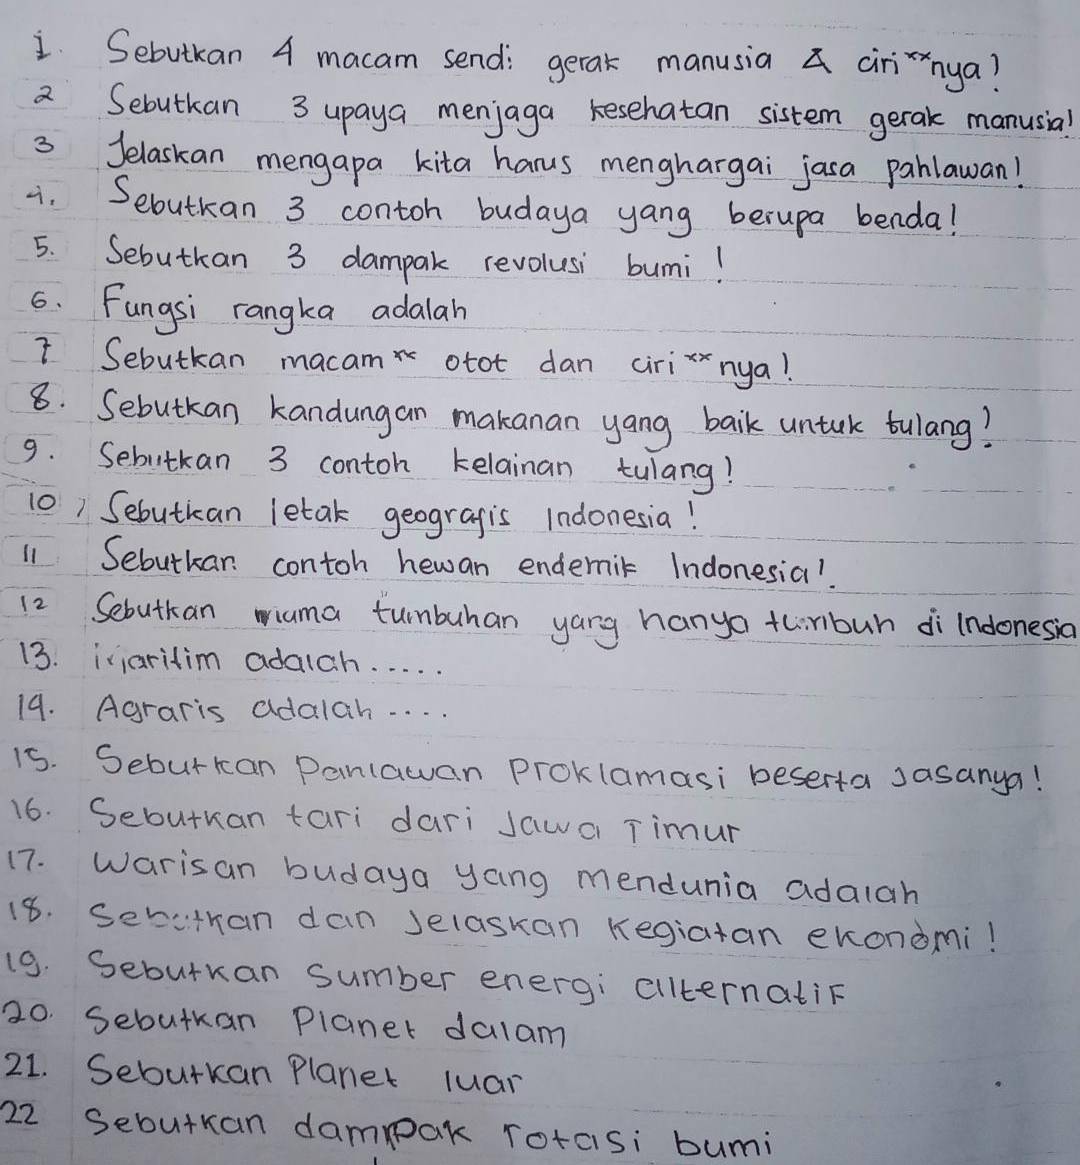 1. Sebutkan 4 macam sendi gerak manusia & ciri ˣˣ nya!
2 Sebutkan 3 upaya menjaga kesehatan sistem gerak manusia!
3 Jelaskan mengapa kita harus menghargai jasa pahlawan!
4. Sebutkan 3 contoh budaya yang berupa benda!
5. Sebutkan 3 dampak revolusi bumi!
6. Fungsi rangka adalah
7 Sebutkan macam ˣˣ otot dan ciri ˣˣ nya!
8. Sebutkan kandungan makanan yang baik untuk tulang!
9. Sebutkan 3 contoh kelainan tulang!
10, Sebutkan letak geografis Indonesia!
11 Sebutkan contoh hewan endemik Indonesia!.
12 Sebutkan tumbuhan yang hanya tumbuh di Indonesia
13. Maritim adalah.....
14. Agraris adalah....
15. Sebutkan Pahlawan Proklamasi beserta Jasanya!
16. Sebutkan tari dari Jawa Timur
17. Warisan budaya yang mendunia adalah
18. Sebutkan dan Jelaskan Kegiatan ekonomi!
19. Sebutkan Sumber energi alternatif
20. Sebutkan Planet dalam
21. Sebutkan Planet luar
22 Sebutkan dampak rotasi bumi